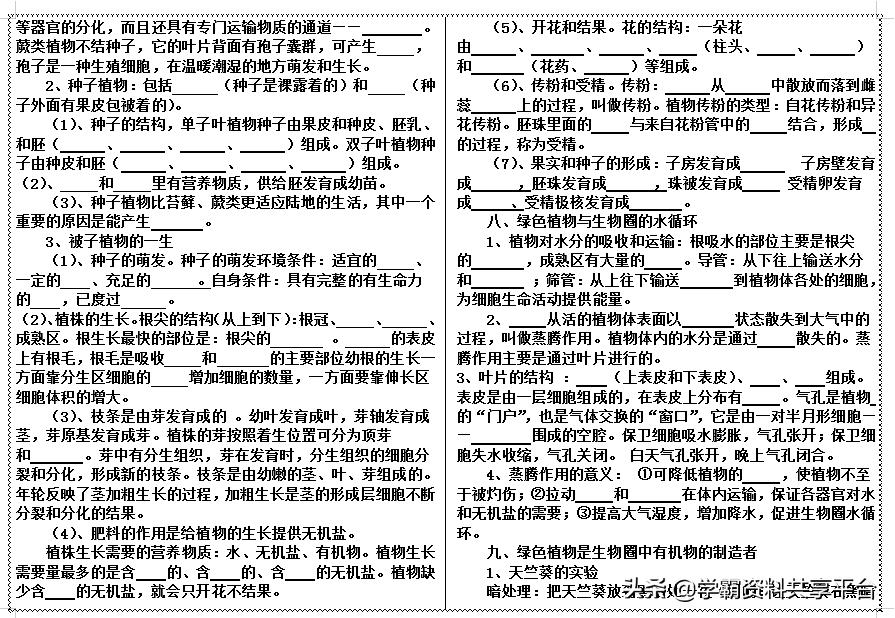 等器官的分化，而且还具有专门运输物质的通道——________。
蕨类植物不结种子，它的叶片背面有孢子囊群，可产生_____，
孢子是一种生殖细胞，在温暖潮湿的地方萌发和生长。
2、种子植物：包括______（种子是裸露着的）和_____（种
子外面有果皮包被着的）。
（1）、种子的结构，单子叶植物种子由果皮和种皮、胚乳、
和胚（______、______、______、______）组成。双子叶植物种
子由种皮和胚（______、_______、______、______）组成。
（2）、_____和_____里有营养物质，供给胚发育成幼苗。
（3）、种子植物比苔藓、蕨类更适应陆地的生活，其中一个
重要的原因是能产生_______。
3、被子植物的一生
（1）、种子的萌发。种子的萌发环境条件：适宜的_____、
一定的____、充足的______。自身条件：具有完整的有生命力
的____，已度过______。
（2）、植株的生长。根尖的结构（从上到下）：根冠、_____、______、
成熟区。根生长最快的部位是：根尖的_______。______的表皮
上有根毛，根毛是吸收_____和_______的主要部位幼根的生长一
方面靠分生区细胞的_____增加细胞的数量，一方面要靠伸长区
细胞体积的增大。
（3）、枝条是由芽发育成的 。幼叶发育成叶，芽轴发育成
茎，芽原基发育成芽。植株的芽按照着生位置可分为顶芽
和_______。芽中有分生组织，芽在发育时，分生组织的细胞分
裂和分化，形成新的枝条。枝条是由幼嫩的茎、叶、芽组成的。
年轮反映了茎加粗生长的过程，加粗生长是茎的形成层细胞不断
分裂和分化的结果。
（4）、肥料的作用是给植物的生长提供无机盐。
植株生长需要的营养物质：水、无机盐、有机物。植物生长
需要量最多的是含____的、含____的、含____的无机盐。植物缺
少含____的无机盐，就会只开花不结果。
（5）、开花和结果。花的结构：一朵花
由______、_______、______、_____（柱头、_____、______）
和_______（花药、______）等组成。
（6）、传粉和受精。传粉：______从______中散放而落到雌
蕊______上的过程，叫做传粉。植物传粉的类型：自花传粉和异
花传粉。胚珠里面的_____与来自花粉管中的_____结合，形成_
的过程，称为受精。
（7）、果实和种子的形成：子房发育成______ 子房壁发育
成______，胚珠发育成______，珠被发育成_____ 受精卵发育
成_____、受精极核发育成_______。
八、绿色植物与生物圈的水循环
1、植物对水分的吸收和运输：根吸水的部位主要是根尖
的_______，成熟区有大量的_____。导管：从下往上输送水分
和_______；筛管：从上往下输送_______到植物体各处的细胞，
为细胞生命活动提供能量。
2、_____从活的植物体表面以_______状态散失到大气中的
过程，叫做蒸腾作用。植物体内的水分是通过_____散失的。蒸
腾作用主要是通过叶片进行的。
3、叶片的结构 ：____（上表皮和下表皮）、____、____组成。
表皮是由一层细胞组成的，在表皮上分布有_____。气孔是植物
的“门户”，也是气体交换的“窗口”，它是由一对半月形细胞—
—________围成的空腔。保卫细胞吸水膨胀，气孔张开；保卫细
胞失水收缩，气孔关闭。 白天气孔张开，晚上气孔闭合。
4、蒸腾作用的意义： ①可降低植物的_____，使植物不至
于被灼伤；②拉动_____和_______在体内运输，保证各器官对水
和无机盐的需要；③提高大气湿度，增加降水，促进生物圈水循
环。
九、绿色植物是生物圈中有机物的制造者
1、天竺葵的实验
暗处理：把天竺葵放
头条 @学霸资料共享平台